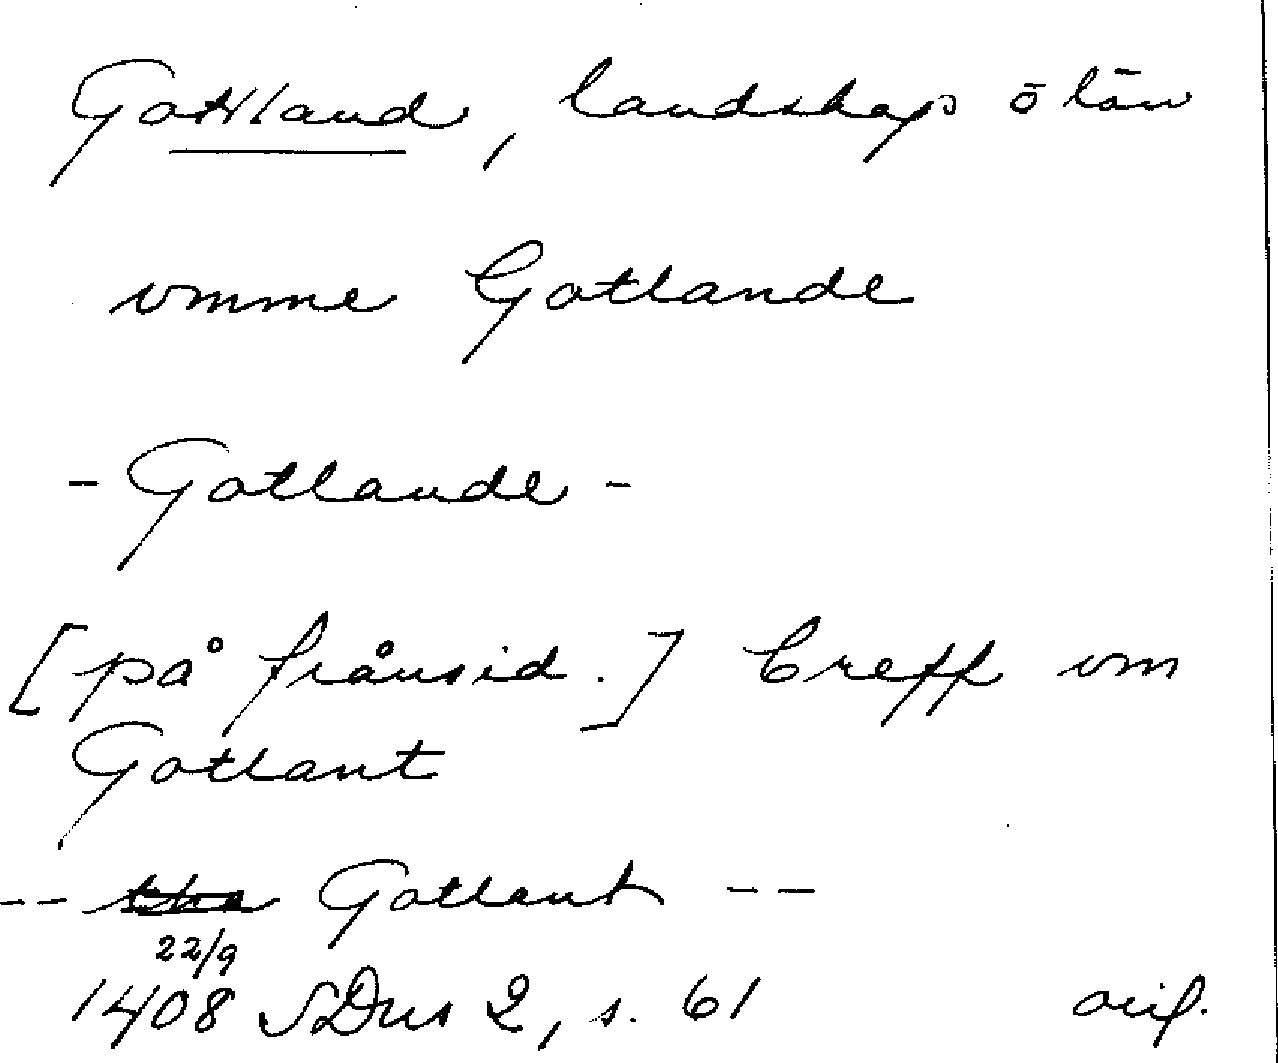 Gottland, landskap ō län
vmme Gotlande
- Gotlande -
[på frånsid.] breff vm
Gotlant
-- Gotlant --
22/9
1408 SDns 2, s. 61 orig.